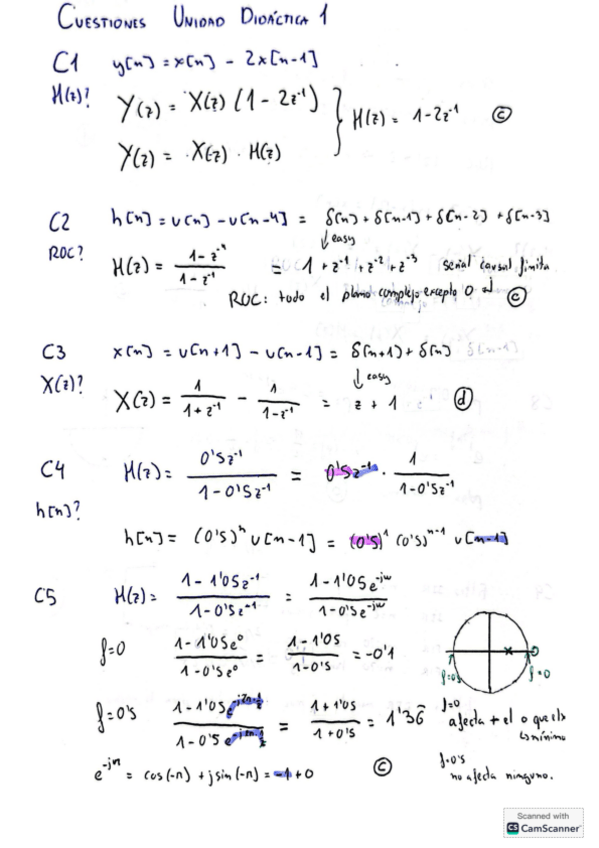 CUESTIONES UNIDAD DIDÁCTICA 1
C1 y[n] = x[n] - 2x[n-1]
H(z)? Y(z) = X(z) (1 - 2z⁻¹)
Y(z) = X(z) · H(z)
H(z) = 1 - 2z⁻¹ ⓒ
C2 h[n] = u[n] - u[n-4] = δ[n] + δ[n-1] + δ[n-2] + δ[n-3]
ROC? ↓ easy
H(z) = (1 - z⁻⁴)/(1 - z⁻¹) = 1 + z⁻¹ + z⁻² + z⁻³ señal causal finita
ROC: todo el plano complejo excepto 0 ⓒ
C3 x[n] = u[n+1] - u[n-1] = δ[n+1] + δ[n] δ[n-1]
X(z)? ↓ easy
X(z) = 1/(1 + z⁻¹) - 1/(1 - z⁻¹) = z + 1 ⓓ
C4 H(z) = 0'5z⁻¹/(1 - 0'5z⁻¹) = 0'5z⁻¹ · 1/(1 - 0'5z⁻¹)
h[n]?
h[n] = (0'5)ⁿ u[n-1] = (0'5)¹ (0'5)ⁿ⁻¹ u[n-1]
C5 H(z) = (1 - 1'05z⁻¹)/(1 - 0'5z⁻¹) = (1 - 1'05e^-jω)/(1 - 0'5e^-jω)
f=0 (1 - 1'05e⁰)/(1 - 0'5e⁰) = (1 - 1'05)/(1 - 0'5) = -0'1
f=0's f=0
f=0's (1 - 1'05e)/(1 - 0'5e) = (1 + 1'05)/(1 + 0'5) = 1'36
f=0
afecta + el o que el x
es mínimo
e^-jπ = cos(-π) + j sin(-π) = -1 + 0 ⓒ
f=0's
no afecta ninguno.
Scanned with
CS CamScanner